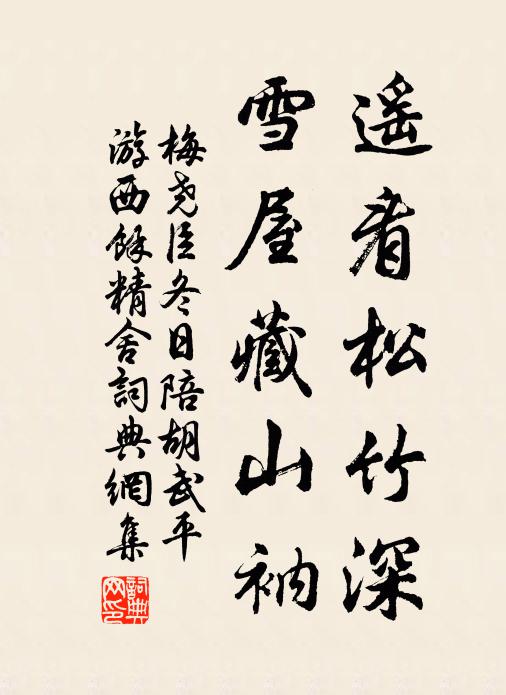 遥看松竹深
雪屋藏山衲
梅尧臣冬日陪胡武平
游西餘精舍詞典網集
詞典
网印